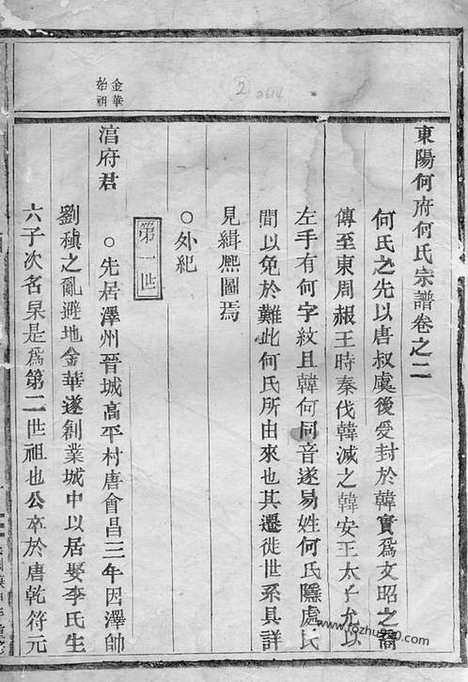 東陽何府何氏宗譜卷之二
何氏之先以唐叔虞後受封於韓實爲文昭之裔
傳至東周赧王時秦伐韓減之韓安王太子允以
左手有何字紋且韓何同音遂易姓何氏隱處民
間以免於難此何氏所由來也其遷徙世系具詳
見緝熙圖焉
○外紀
第一世
金華
始祖
涫府君
○先居澤州晉城高平村唐會昌三年因澤帥
劉稹之亂避地金華遂創業城中以居娶李氏生
六子次名杲是爲第二世祖也公卒於唐乾符元
2 0614
www.fozhu920.com